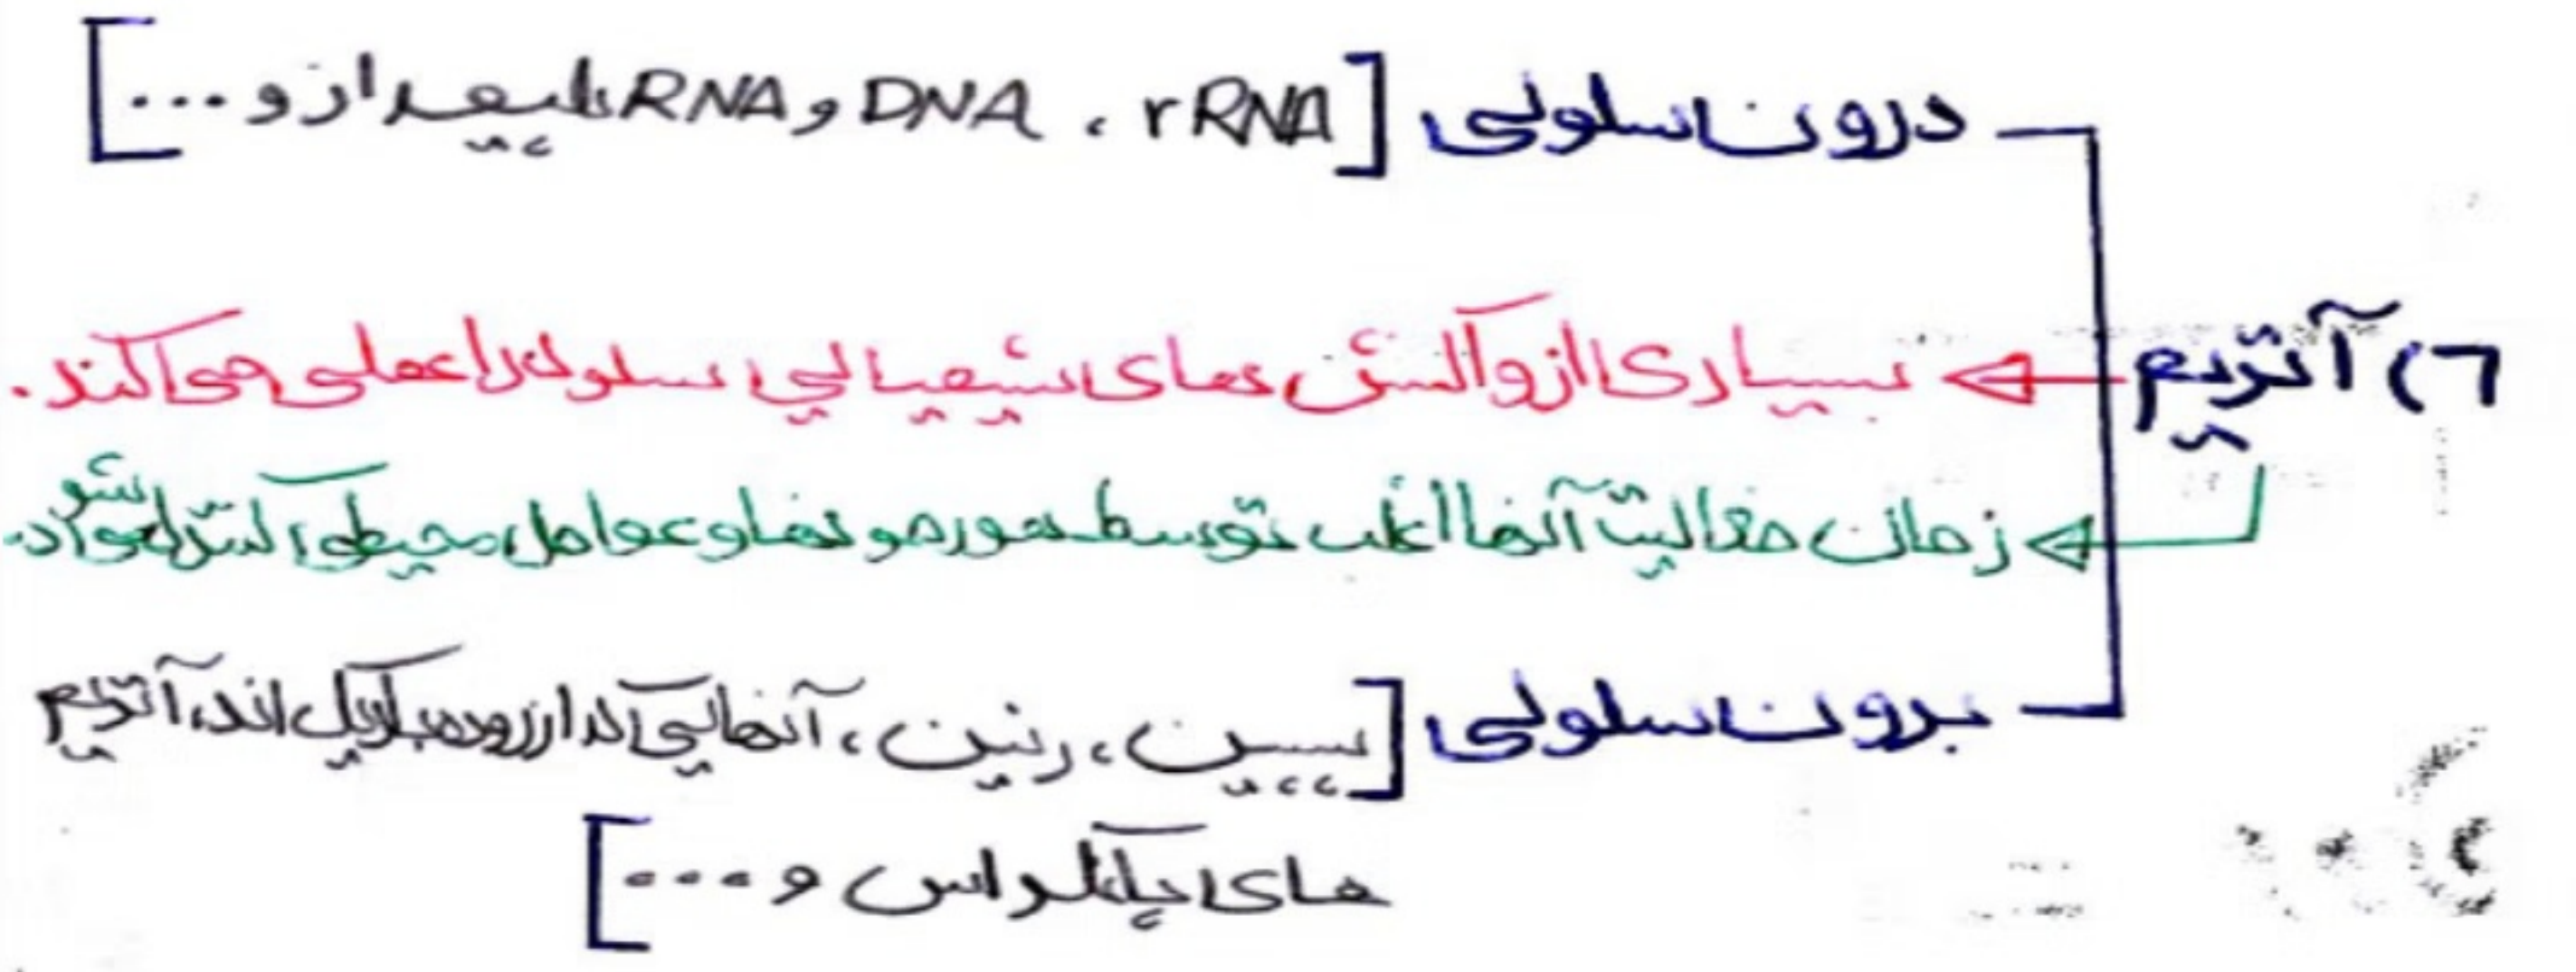 درون سلولی [rRNA ، DNA و RNA پلیمراز و ...]
۶) آنزیم ← بسیاری از واکنش های شیمیایی سلول را عملی می کند.
← زمان فعالیت آنها اغلب توسط هورمونها و عوامل محیطی کنترل می شود.
برون سلولی [پپسین، رنین، آنهایی که در روده باریک اند، آنزیم
های پانکراس و ...]